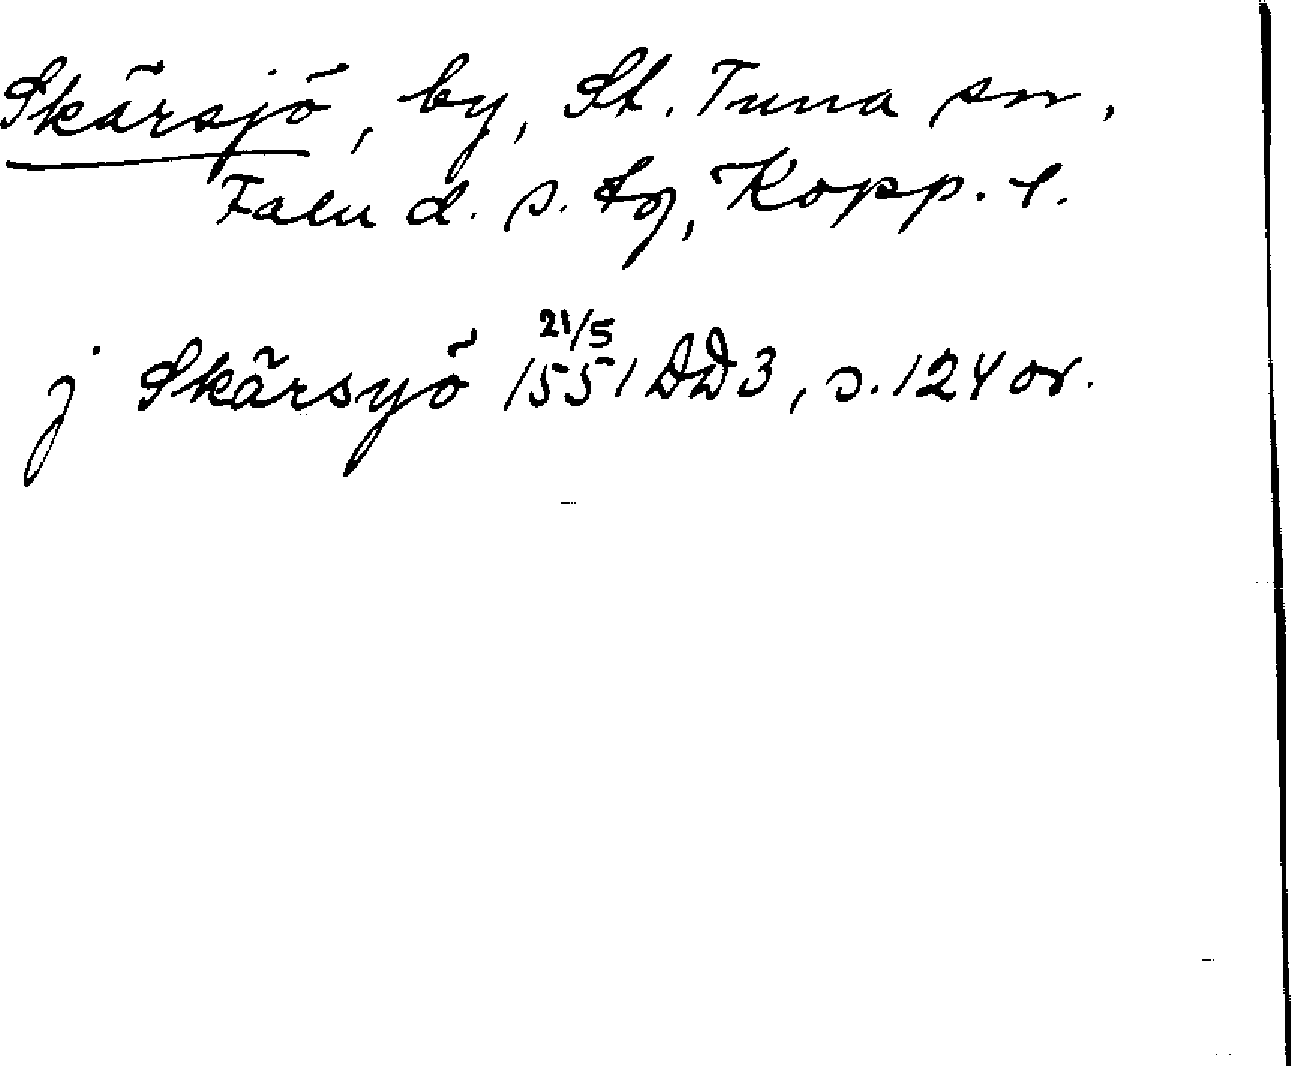 Skärsjö, by, St. Tuna sn,
Falu d. s. tg, Kopp. l.
j Skärsyö 21/5 1551 DD3, s. 124 or.